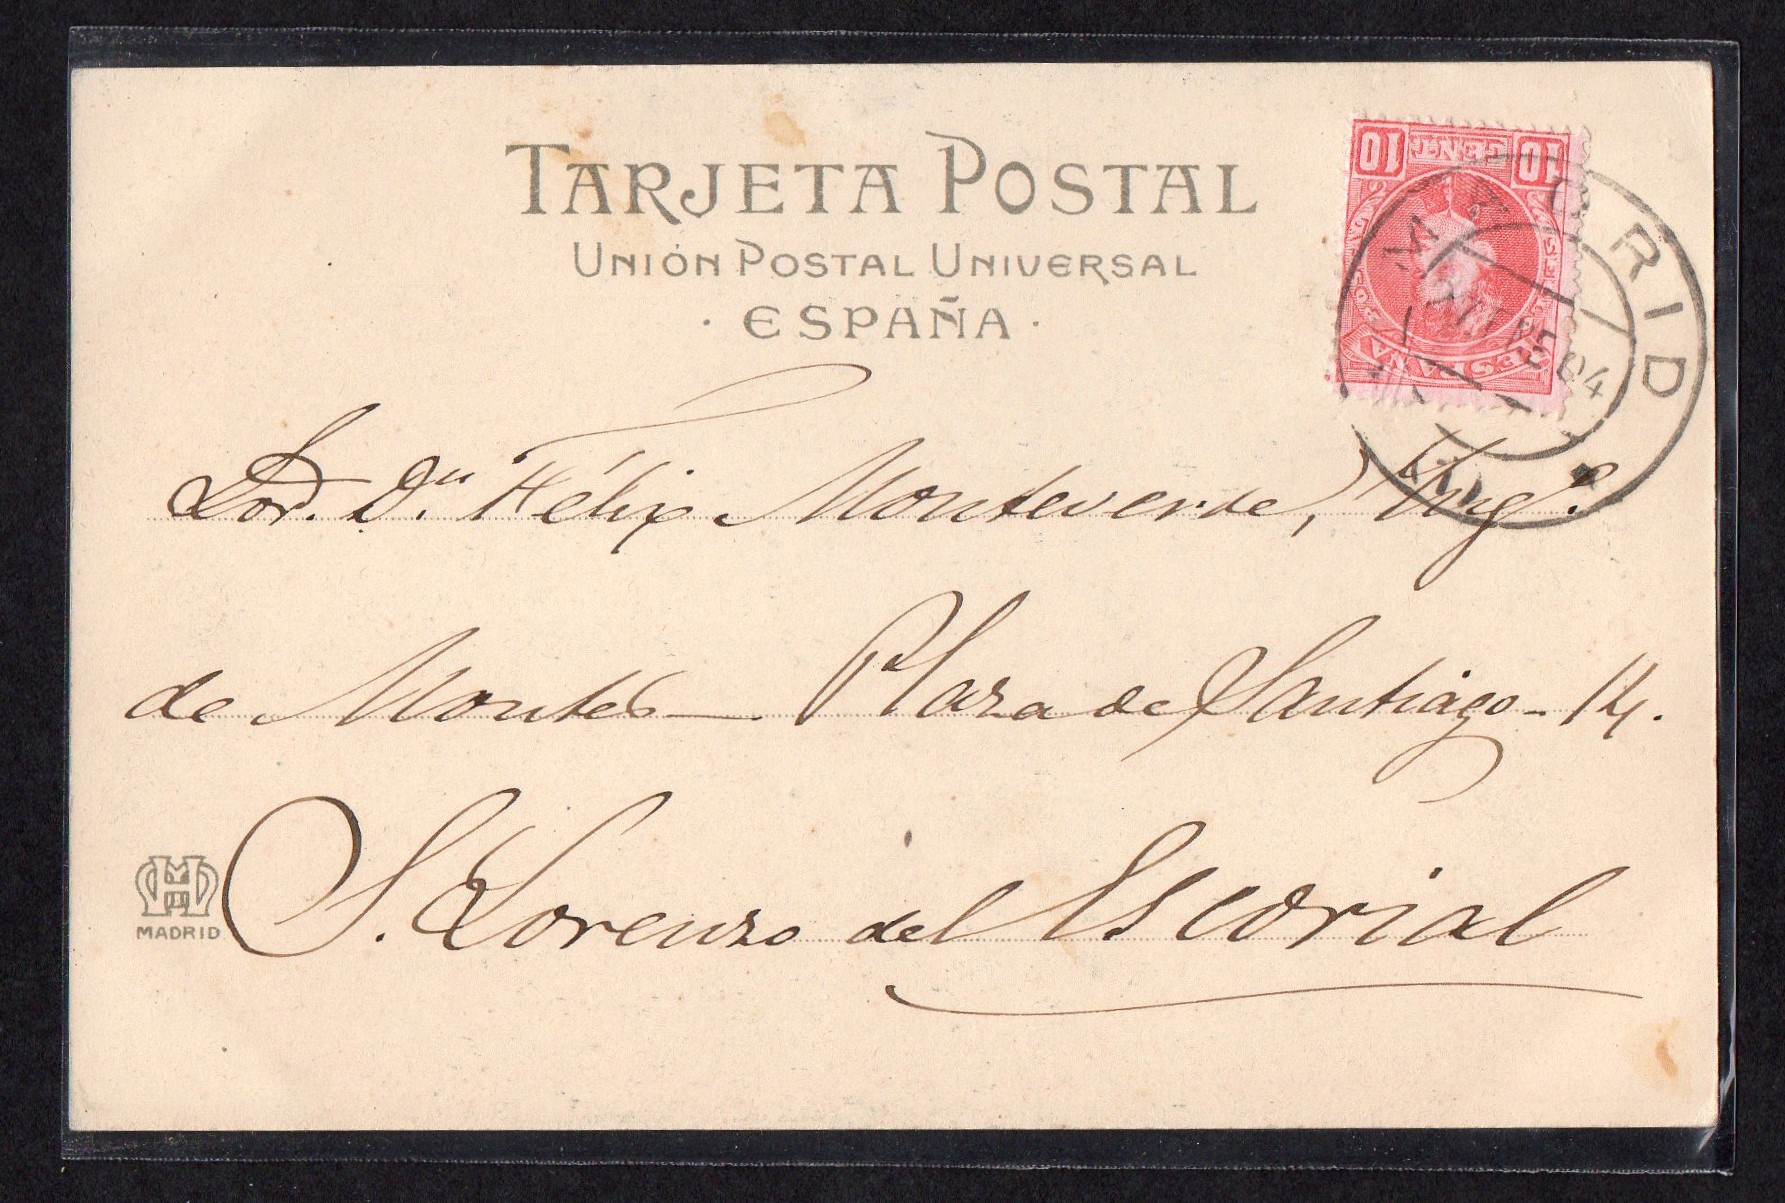 TARJETA POSTAL
UNIÓN POSTAL UNIVERSAL
· ESPAÑA ·
10 CENTS 10
ESPAÑA
MADRID
04
Sor. Dn. Félix Monteverde, Ingo.
de Montes — Plaza de Santiago - 14.
S. Lorenzo del Escorial
MADRID